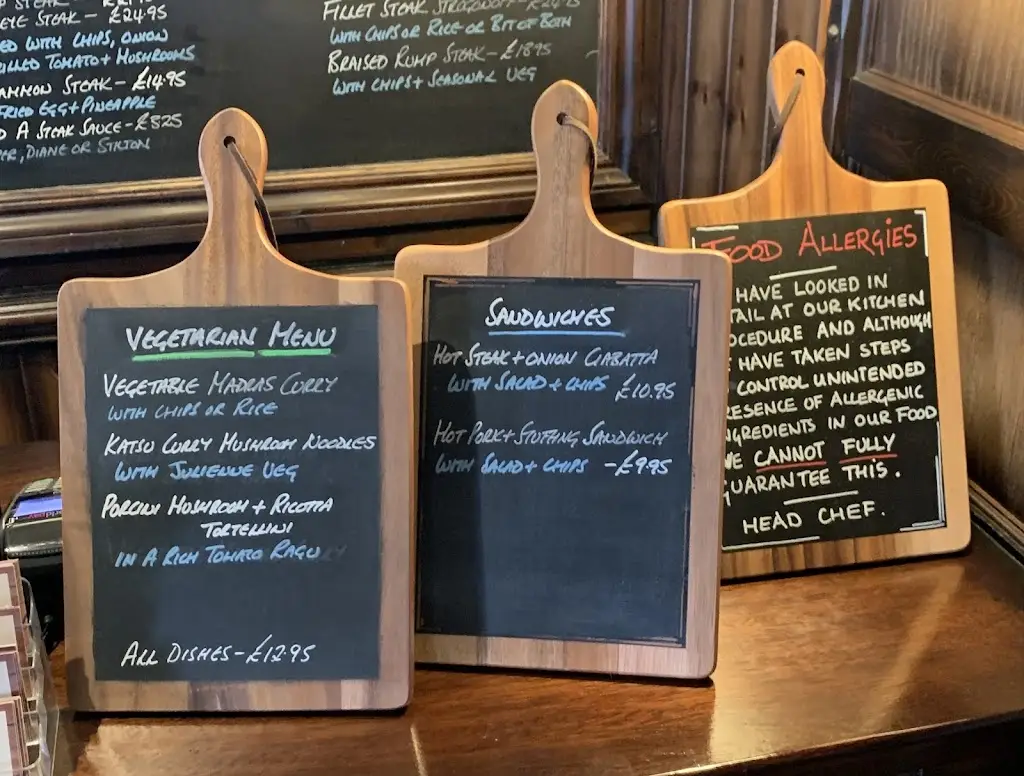 EYE STEAK - £24.95
ED WITH CHIPS, ONION
ILLED TOMATO + MUSHROOMS
AMMON STEAK - £14.95
FRIED EGG + PINEAPPLE
D A STEAK SAUCE - £3.25
PER, DIANE OR STILTON
FILLET STEAK STROGONOFF - £
WITH CHIPS OR RICE OR BIT OF BOTH
BRAISED RUMP STEAK - £18.95
WITH CHIPS + SEASONAL VEG
VEGETARIAN MENU
VEGETABLE MADRAS CURRY
WITH CHIPS OR RICE
KATSU CURRY MUSHROOM NOODLES
WITH JULIENNE VEG
PORCINI MUSHROOM + RICOTTA
TORTELLINI
IN A RICH TOMATO RAGU
ALL DISHES - £12.95
SANDWICHES
HOT STEAK + ONION CIABATTA
WITH SALAD + CHIPS £10.95
HOT PORK + STUFFING SANDWICH
WITH SALAD + CHIPS - £9.95
FOOD ALLERGIES
HAVE LOOKED IN
TAIL AT OUR KITCHEN
OCEDURE AND ALTHOUGH
HAVE TAKEN STEPS
CONTROL UNINTENDED
RESENCE OF ALLERGENIC
NGREDIENTS IN OUR FOOD
WE CANNOT FULLY
GUARANTEE THIS.
HEAD CHEF.